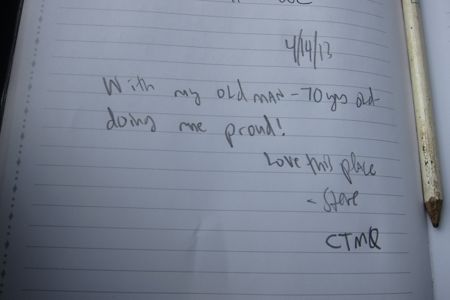 4/14/13
With my old man - 70 yrs old -
doing me proud!
Love this place
- Steve
CTMQ